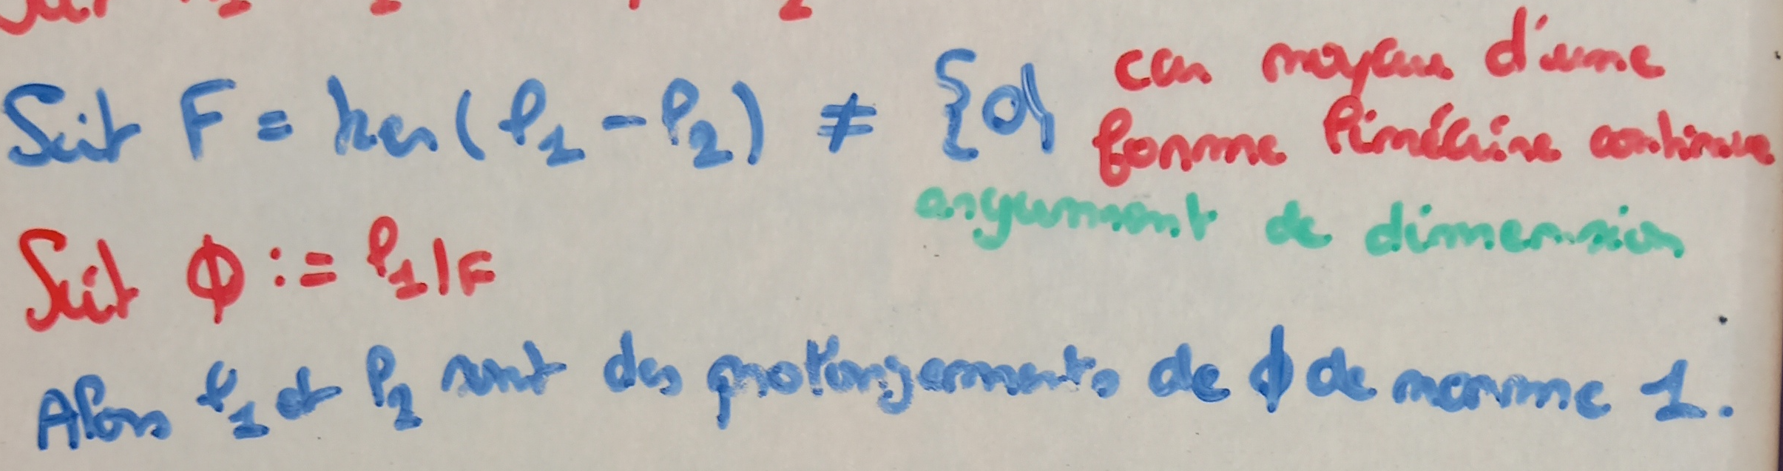 Soit F = ker(ℓ₁ - ℓ₂) ≠ {0} car noyau d'une
forme linéaire continue
argument de dimension
Soit ϕ := ℓ₁|F
Alors ℓ₁ et ℓ₂ sont des prolongements de ϕ de norme 1.